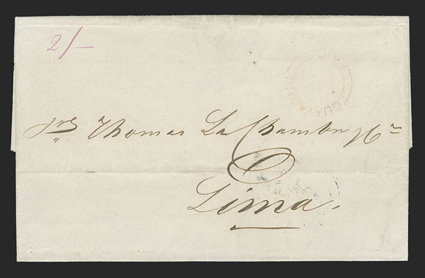 2/-
GUAYAQUIL
Sres Thomas La Chambre y Ca
Lima.